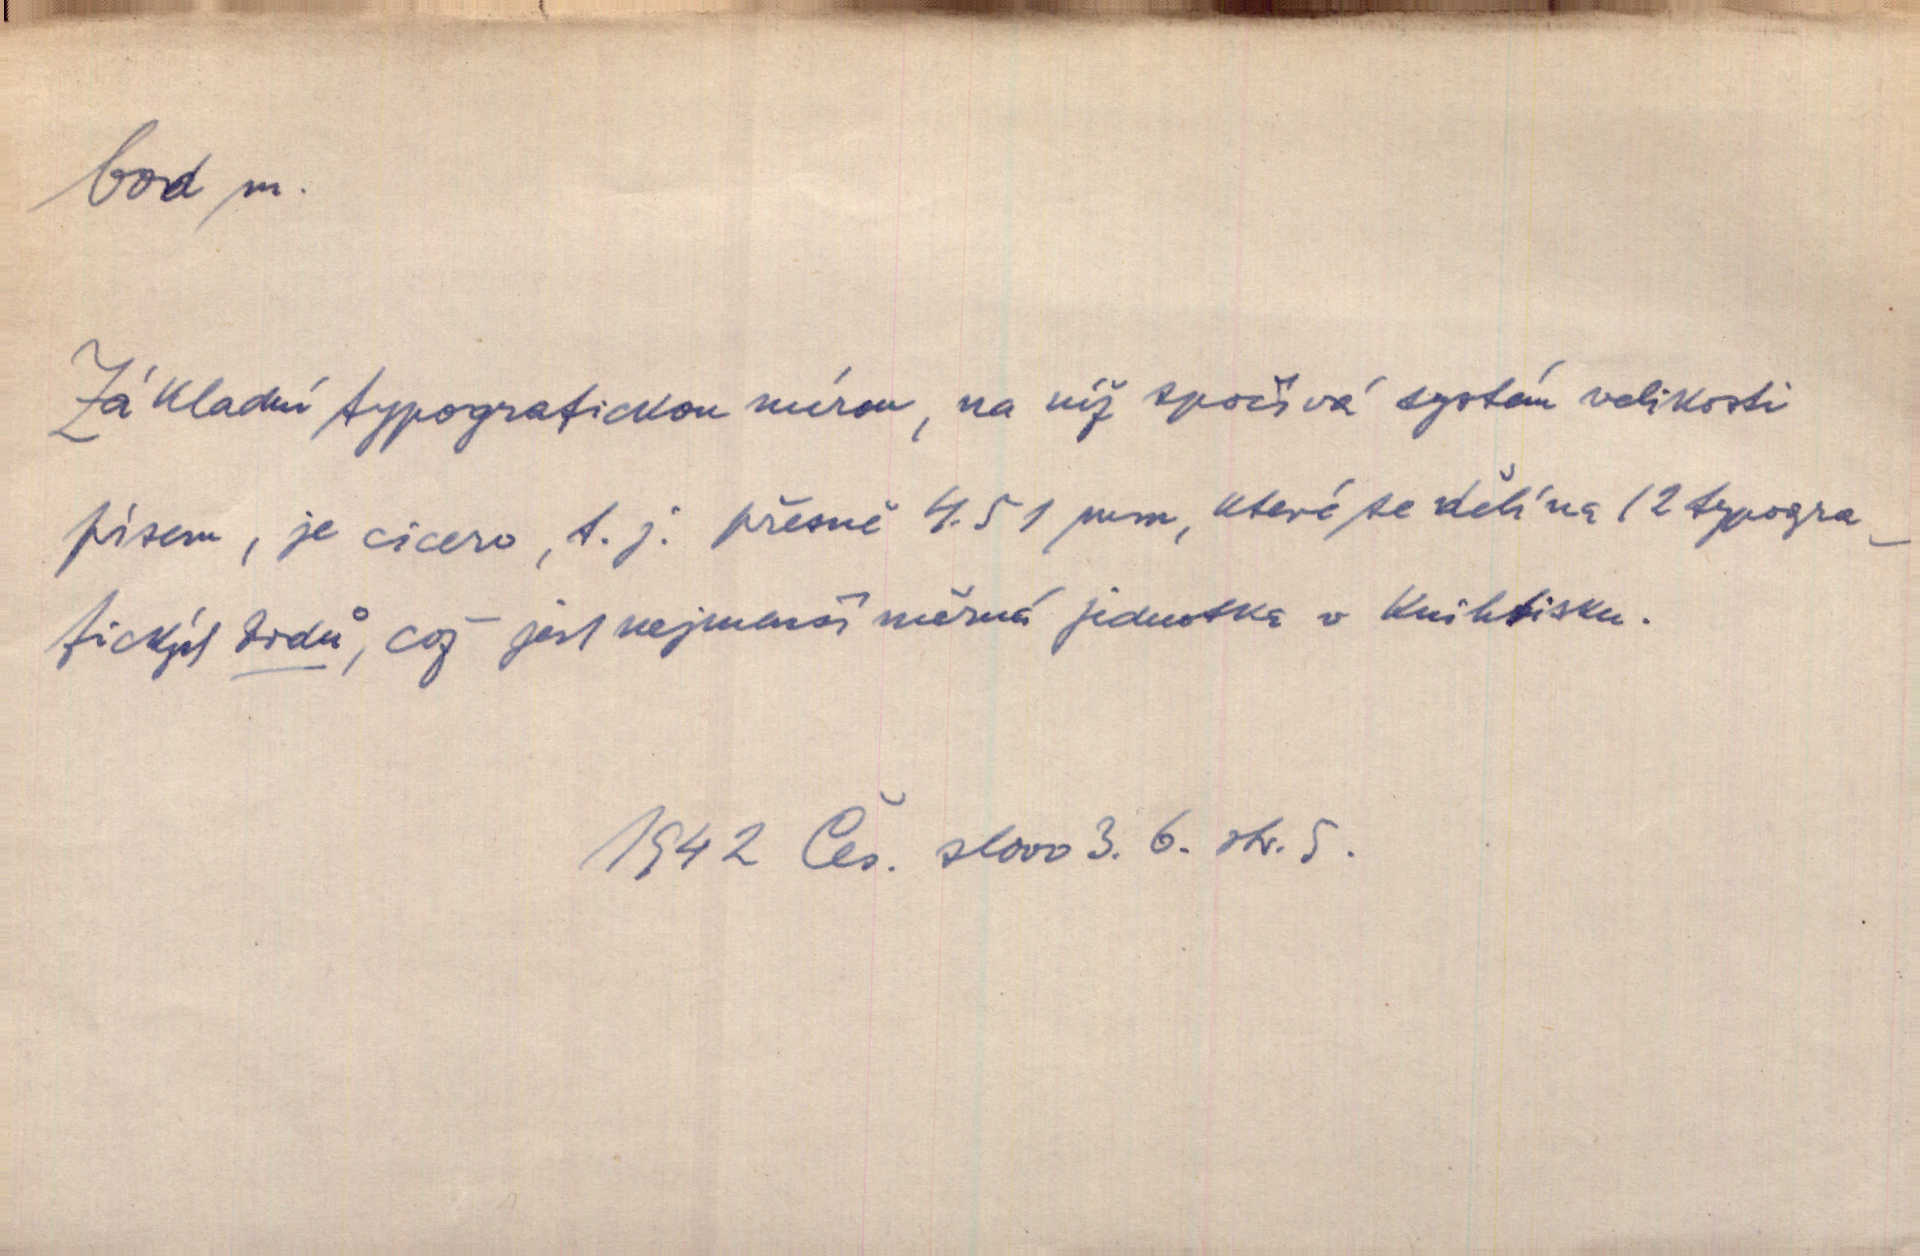 bod m.
Základní typografickou mírou, na níž spočívá systém velikosti
písem, je cicero, t. j. přesně 4.51 mm, které se dělí na 12 typogra_
fických bodů, což jest nejmenší měrná jednotka v knihtisku.
1942 Čes. slovo 3. 6. str. 5.